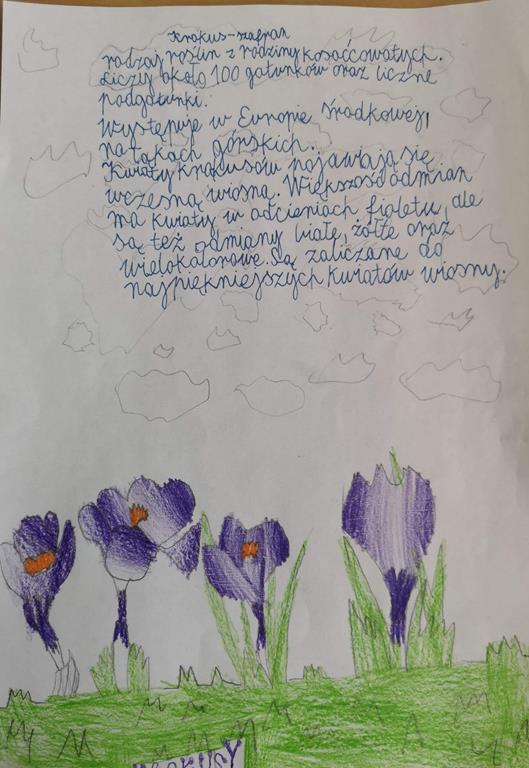 Krokus-szafran
rodzaj roślin z rodziny kosaćcowatych.
Liczy około 100 gatunków oraz liczne
podgatunki.
Występuje w Europie środkowej,
na łąkach górskich.
Kwiaty krokusów pojawiają się
wczesną wiosną. Większość odmian
ma kwiaty w odcieniach fioletu, ale
są też odmiany białe, żółte oraz
wielokolorowe. Są zaliczane do
najpiękniejszych kwiatów wiosny.
KROKUSY